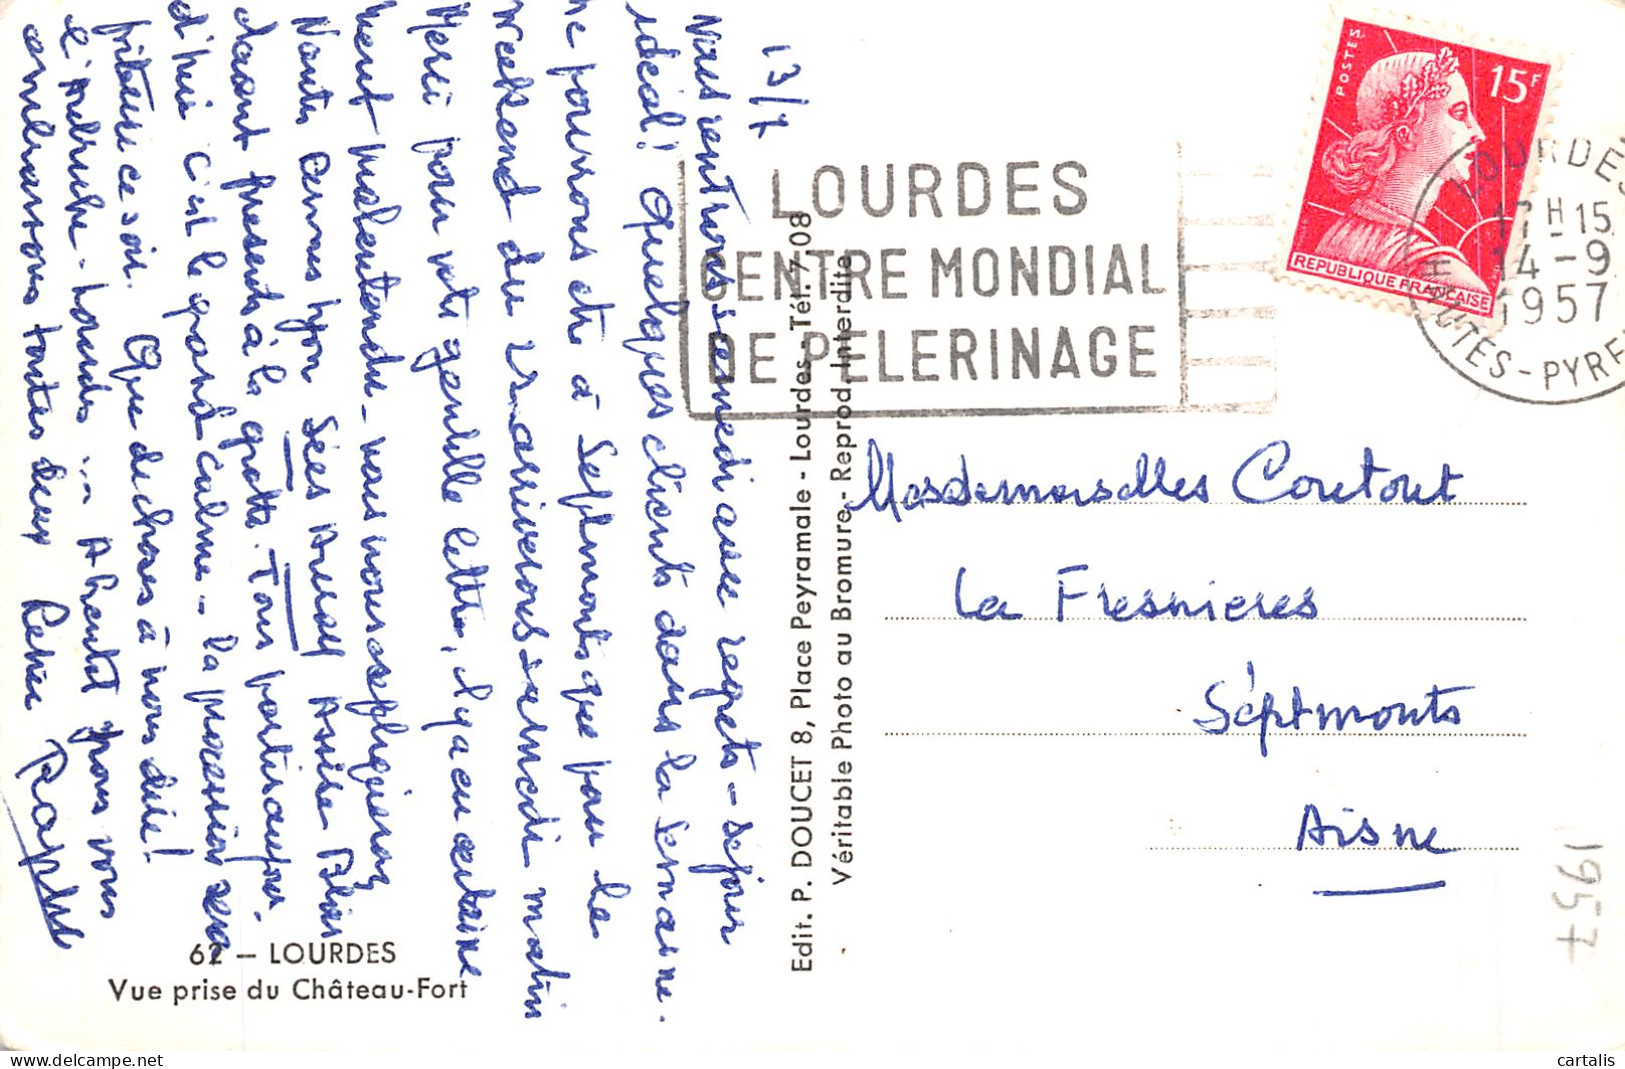 13/7
Nous rentrons samedi avec regrets - séjour
idéal! Quelques clients dans la semaine.
ne pourrons être à Septmonts que pour le
weekend du 21 arriverons samedi matin
Merci pour votre gentille lettre, il y a eu certaine
ment malentendu - nous nous expliquerons
Nantes Cannes Lyon Sées Blois
étaient présents à la grotte. Tous partis aujour.
d'hui c'est le grand calme - la procession sera
ce soir. Que de choses à nous dire!
Lourdes ... A bientôt nous vous
embrassons toutes deux
62 – LOURDES
Vue prise du Château-Fort
Edit. P. DOUCET 8, Place Peyramale - Lourdes - Tél. 7.08
Véritable Photo au Bromure - Reprod. Interdite
LOURDES
CENTRE MONDIAL
DE PELERINAGE
POSTES
15F
REPUBLIQUE FRANÇAISE
LOURDES
17H15
14-9
1957
HAUTES-PYR
Mesdemoiselles Coutout
La Fresnieres
Séptmonts
Aisne
1957
cartalis